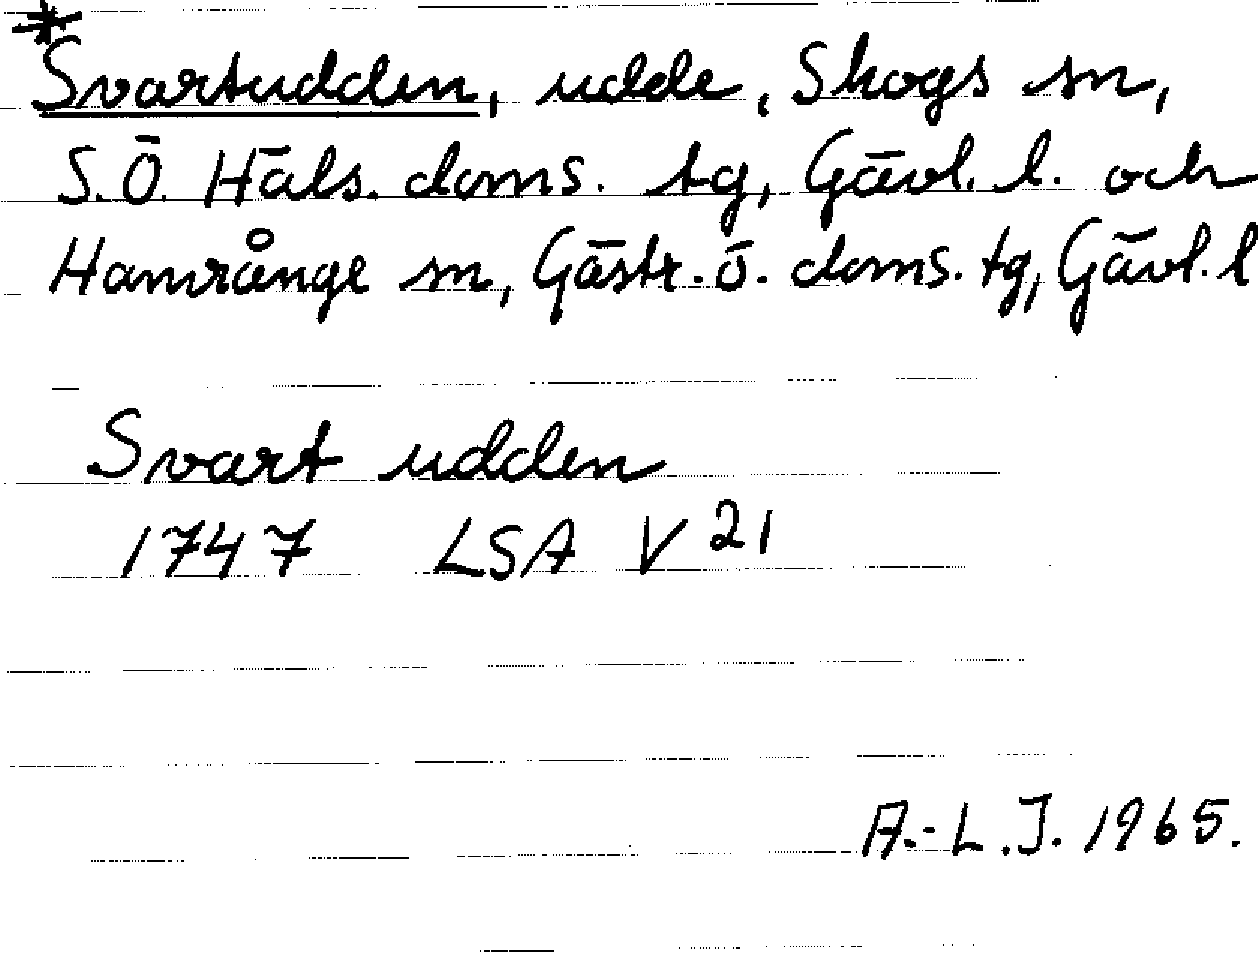 *Svartudden, udde, Skogs sn,
S.Ö. Häls. doms. tg, Gävl. l. och
Hamrånge sn, Gästr. ö. doms. tg, Gävl. l
Svart udden
1747 LSA V 21
A.-L.J. 1965.